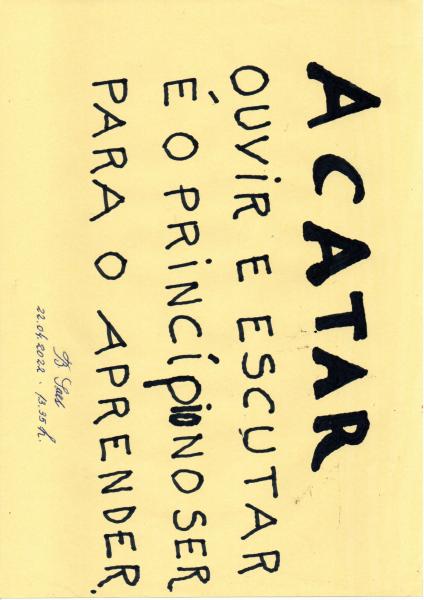 ACATAR
OUVIR E ESCUTAR
É O PRINCÍPIO NO SER
PARA O APRENDER.
B Saes
22.04.2022. 13.35h.